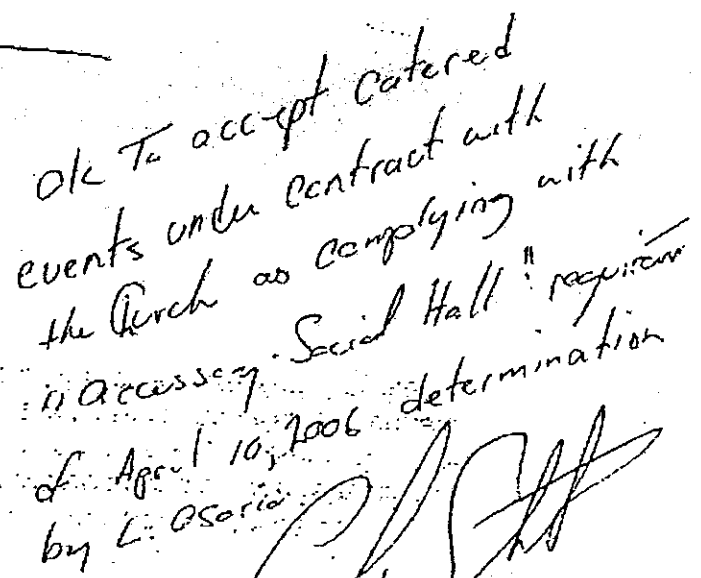 Ok To accept Catered
events under Contract with
the Church as complying with
"accessory Social Hall"
of April 10, 2006 determination
by L. Osorio